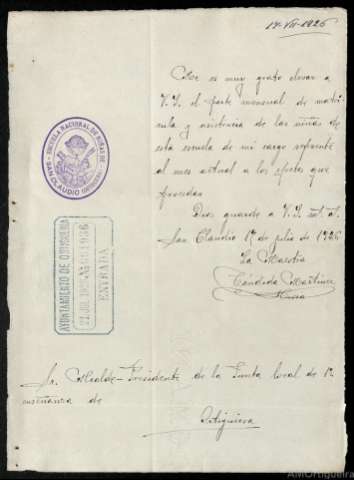 17-VII-1926
Me es muy grato elevar a
V. S. el parte mensual de matrí-
cula y asistencia de las niñas de
esta escuela de mi cargo referente
al mes actual a los efectos que
procedan
Dios guarde a V. S. m. a.
San Claudio 17 de julio de 1926
La Maestra
Cándida Martínez
ESCUELA NACIONAL DE NIÑAS DE
SAN CLAUDIO
AYUNTAMIENTO DE ORTIGUEIRA
21 JUL 1926
ENTRADA
Sr. Alcalde-Presidente de la Junta local de 1ª
enseñanza de
Ortigueira
AMOrtigueira